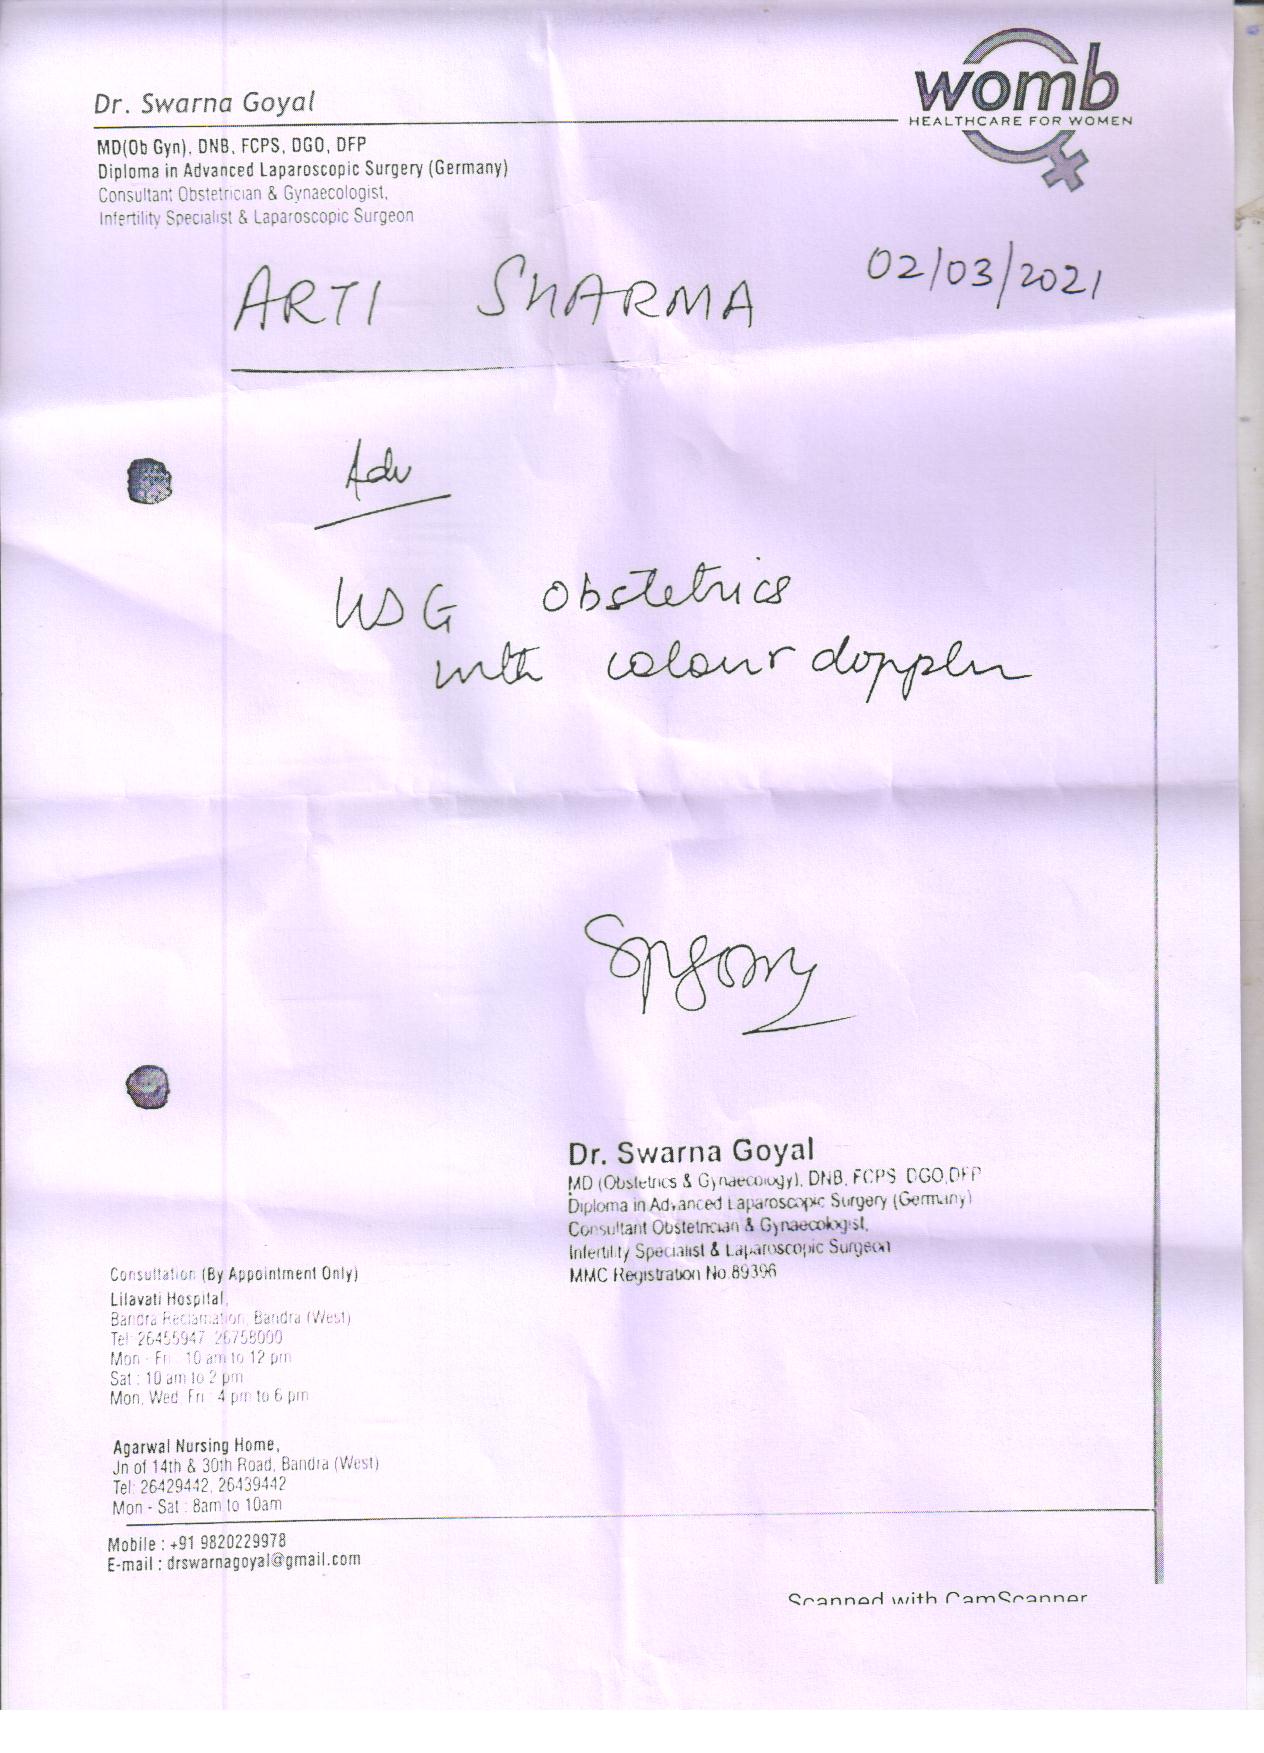 Dr. Swarna Goyal
womb
HEALTHCARE FOR WOMEN
MD(Ob Gyn), DNB, FCPS, DGO, DFP
Diploma in Advanced Laparoscopic Surgery (Germany)
Consultant Obstetrician & Gynaecologist,
Infertility Specialist & Laparoscopic Surgeon
02/03/2021
ARTI SHARMA
Adv
USG obstetrics
with colour doppler
Dr. Swarna Goyal
MD (Obstetrics & Gynaecology), DNB, FCPS DGO,DFP
Diploma in Advanced Laparoscopic Surgery (Germany)
Consultant Obstetrician & Gynaecologist,
Infertility Specialist & Laparoscopic Surgeon
MMC Registration No.89396
Consultation (By Appointment Only)
Lilavati Hospital,
Bandra Reclamation, Bandra (West)
Tel: 26455947, 26758000
Mon - Fri : 10 am to 12 pm
Sat : 10 am to 2 pm
Mon, Wed, Fri : 4 pm to 6 pm
Agarwal Nursing Home,
Jn of 14th & 30th Road, Bandra (West)
Tel: 26429442, 26439442
Mon - Sat : 8am to 10am
Mobile : +91 9820229978
E-mail : drswarnagoyal@gmail.com
Scanned with CamScanner